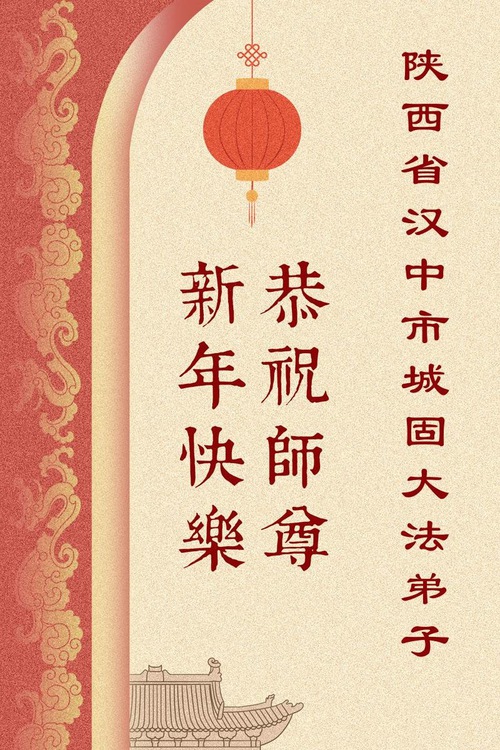 陕西省汉中市城固大法弟子
恭祝師尊
新年快樂